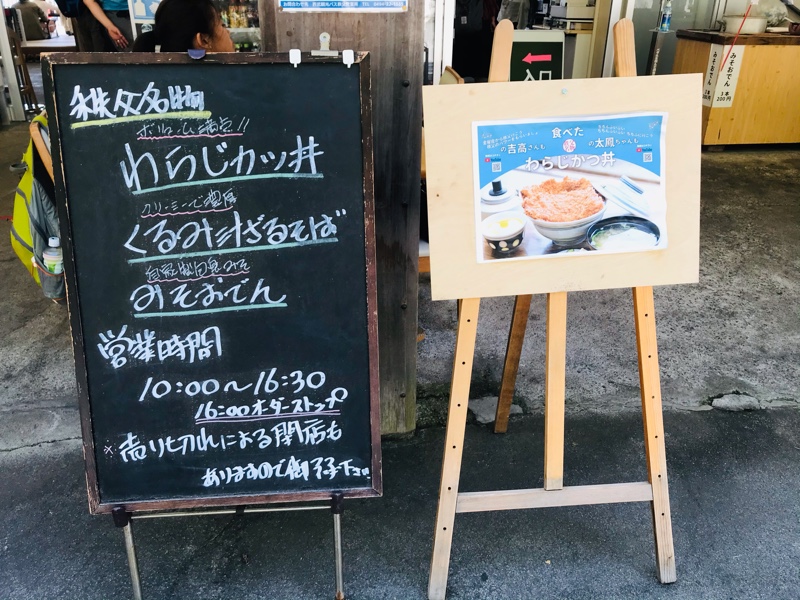 秩父名物
ボリューム満点!!
わらじカツ丼
クリーミーで濃厚
くるみ汁ざるそば
みそおでん
営業時間
10:00〜16:30
16:00オーダーストップ
※売り切れによる閉店も
ありますので御了承下さい
食べた
の吉高さんも
の太鳳ちゃんも
わらじかつ丼
入
みそおでん
1本
200円
みそおでん